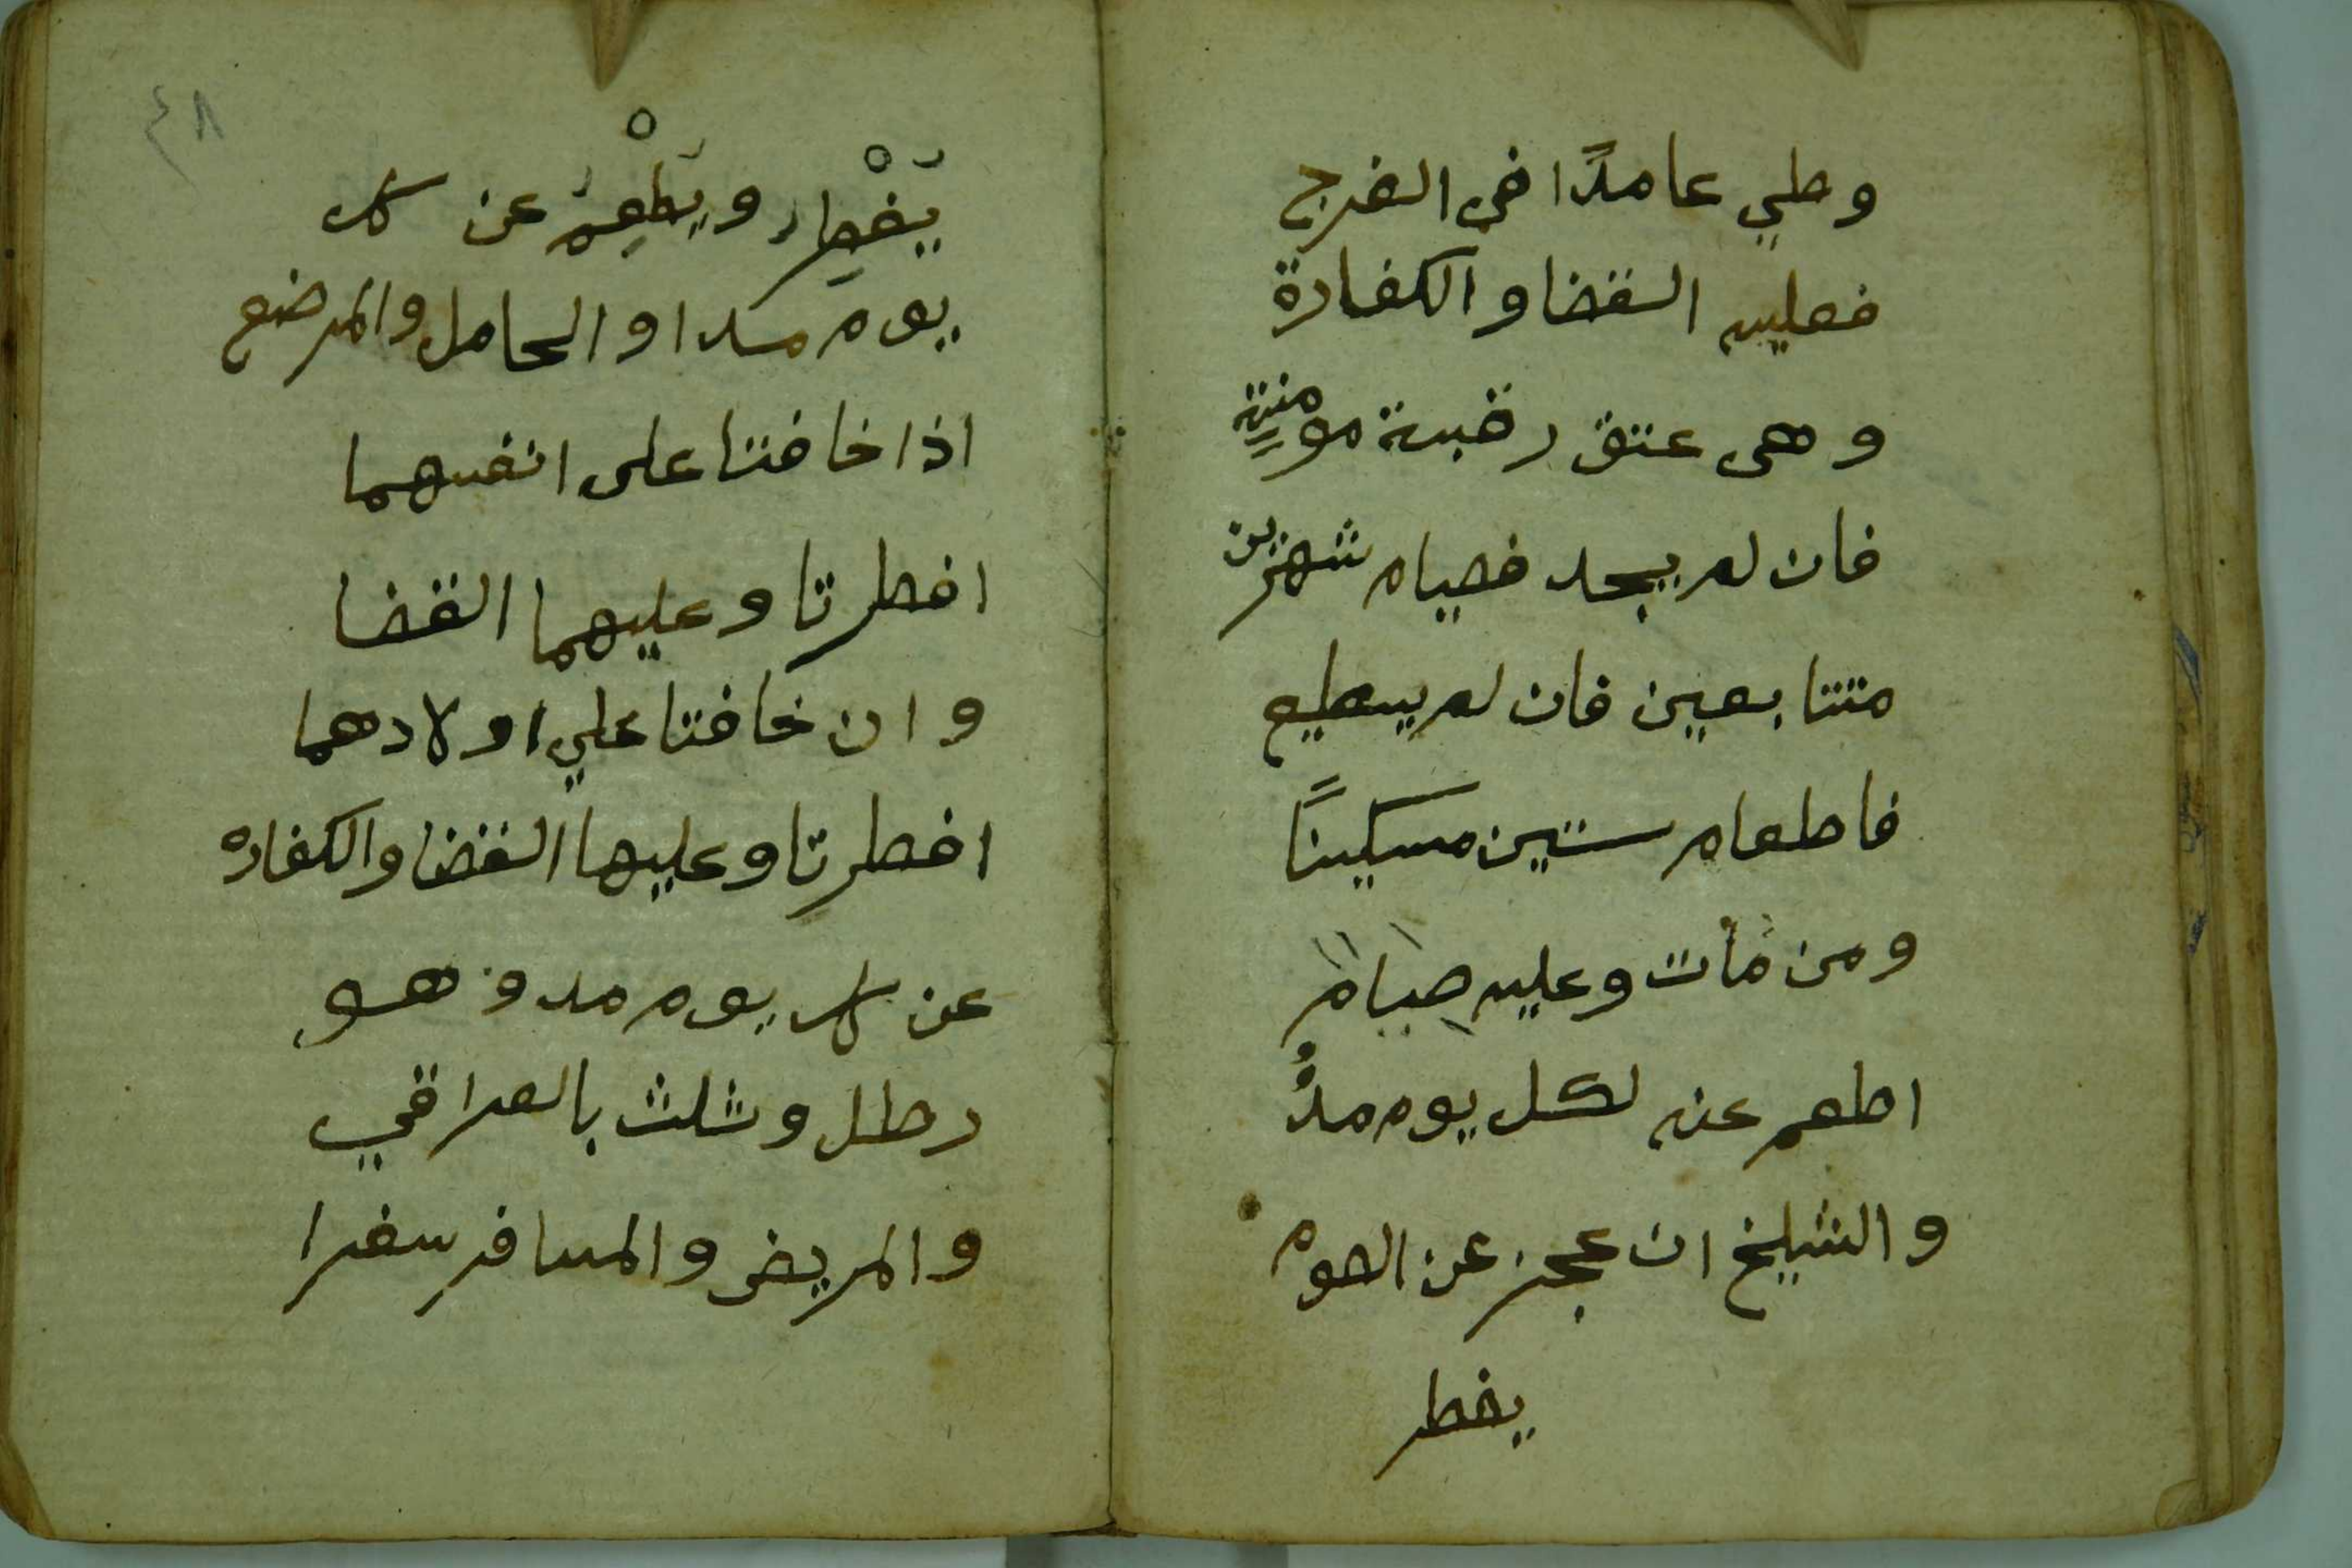 وطي عامدًا في الفرج
فعليه القضا والكفارة
وهى عتق رقبة مومنة
فان لم يجد فصيام شهرين
متتابعين فان لم يسطيع
فاطعام ستين مسكينًا
ومن مات وعليه صيام
اطعم عنه لكل يوم مدٌ
والشيخ ان عجز عن الصوم
يفطر
٤٨
يَفْطِر ويَطْعِمُ عن كل
يوم مدا والحامل والمرضع
اذا خافتا على انفسهما
افطرتا وعليهما القضا
وان خافتا علي اولادهما
افطرتا وعليهما القضا والكفاره
عن كل يوم مد وهو
رطل وثلث بالعراقي
والمريض والمسافر سفرا